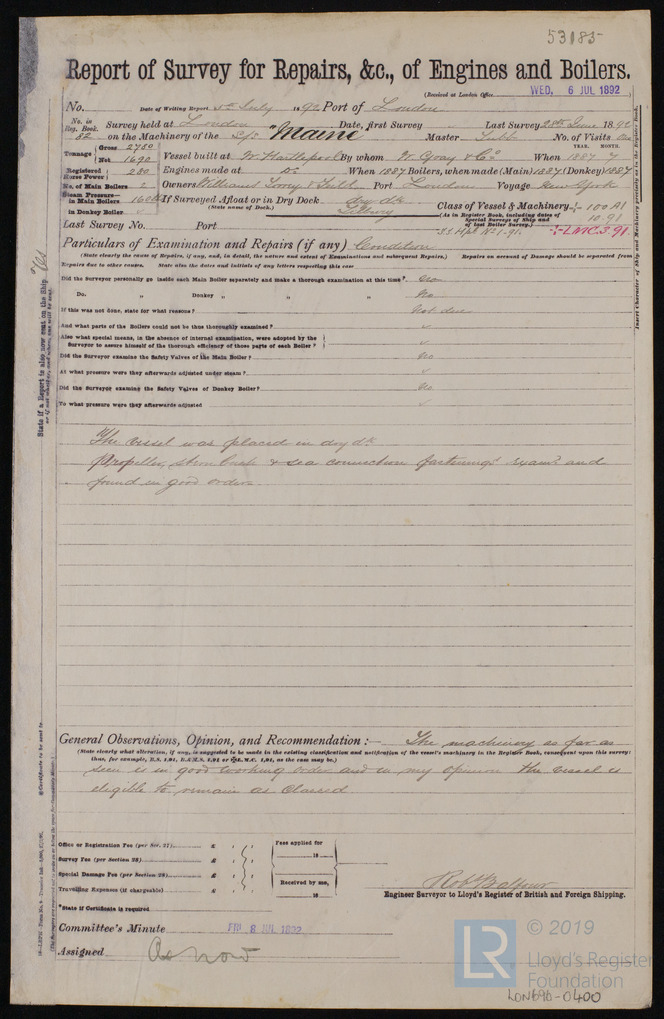 53185
Report of Survey for Repairs, &c., of Engines and Boilers.
(Received at London Office WED. 6 JUL 1892
No. Date of Writing Report 5th July 1892 Port of London
No. in Reg. Book. 82 Survey held at London Date, first Survey Last Survey 28th June 1892
on the Machinery of the S/S "Maine" Master No. of Visits
Tonnage Gross 2780 Net 1690 Vessel built at W. Hartlepool By whom W. Gray & Co. When YEAR. 1887 MONTH. 7
Registered Horse Power 280 Engines made at Do When 1887 Boilers, when made (Main) 1887 (Donkey) 1887
No. of Main Boilers 2 Owners Williams Torrey & Feild Port London Voyage New York
Steam Pressure in Main Boilers 160 lbs If Surveyed Afloat or in Dry Dock dry dk Tilbury
(State name of Dock.)
in Donkey Boiler
Class of Vessel & Machinery 100 A1
(As in Register Book, including dates of Special Surveys of Ship and of last Boiler Survey.) 10.91
Last Survey No. Port
S.S. Hpl No 1.91. LMC.3.91
Particulars of Examination and Repairs (if any) Condition
(State clearly the cause of Repairs, if any, and, in detail, the nature and extent of Examinations and subsequent Repairs.) Repairs on account of Damage should be separated from
Repairs due to other causes. State also the dates and initials of any letters respecting this case
Did the Surveyor personally go inside each Main Boiler separately and make a thorough examination at this time? No
Do. " Donkey " " " No
If this was not done, state for what reasons? Not due
And what parts of the Boilers could not be thus thoroughly examined? ✓
Also what special means, in the absence of internal examination, were adopted by the Surveyor to assure himself of the thorough efficiency of those parts of each Boiler? ✓
Did the Surveyor examine the Safety Valves of the Main Boiler? No
At what pressure were they afterwards adjusted under steam? ✓
Did the Surveyor examine the Safety Valves of Donkey Boiler? No
To what pressure were they afterwards adjusted ✓
The vessel was placed in dry dk
Propeller, stern bush & sea connection fastenings examd and
found in good order.
General Observations, Opinion, and Recommendation :— The machinery as far as
(State clearly what alteration, if any, is suggested to be made in the existing classification and notification of the vessel's machinery in the Register Book, consequent upon this survey;
thus, for example, B.S. 1,91, B.&M.S. 1,91 or L.M.C. 1,91, as the case may be.)
seen is in good working order and in my opinion the vessel is
eligible to remain as Classed
Office or Registration Fee (per Sec. 27) £
Survey Fee (per Section 28) £
Special Damage Fee (per Section 28) £
Travelling Expenses (if chargeable) £
Fees applied for 18
Received by me, 18
*State if Certificate is required
Robt Balfour
Engineer Surveyor to Lloyd's Register of British and Foreign Shipping.
Committee's Minute FRI. 8 JUL 1892
Assigned As now
State if a Report is also now sent on the Ship Yes
Insert Character of Ship and Machinery precisely as in the Register Book.
LR
© 2019
Lloyd's Register
Foundation
LON690-0400